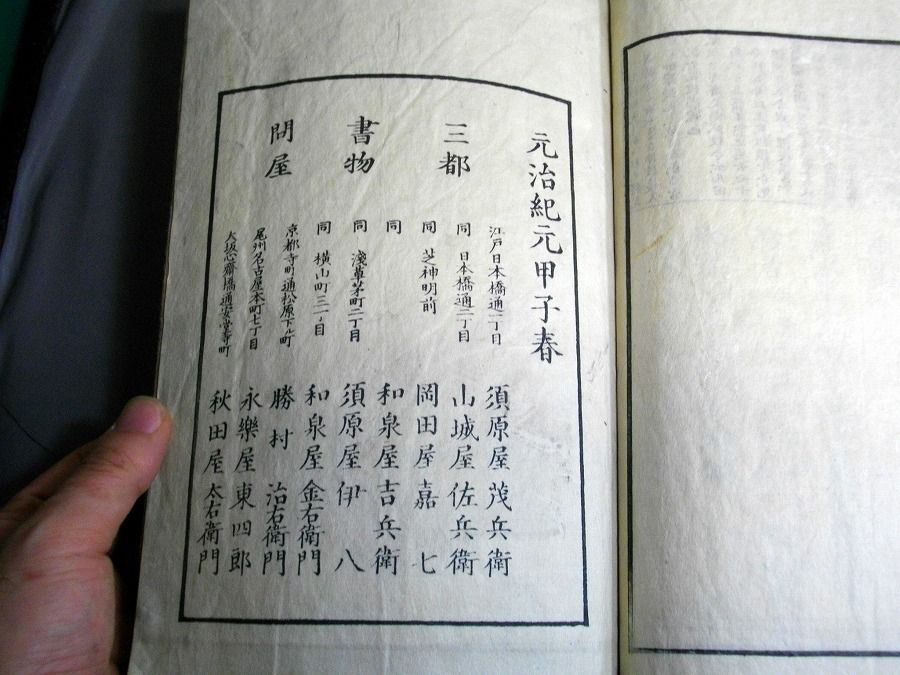 元治紀元甲子春
三都
書物
問屋
江戸日本橋通一丁目 須原屋茂兵衛
同 日本橋通二丁目 山城屋佐兵衛
同 芝神明前 岡田屋嘉七
同 和泉屋吉兵衛
同 淺草茅町二丁目 須原屋伊八
同 横山町三丁目 和泉屋金右衛門
京都寺町通松原下ル町 勝村治右衛門
尾州名古屋本町七丁目 永樂屋東四郎
大坂心齋橋通安堂寺町 秋田屋太右衛門